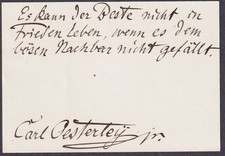 Es kann der Beste nicht in
Frieden leben, wenn es dem
bösen Nachbar nicht gefällt.
Carl Oesterley jr.